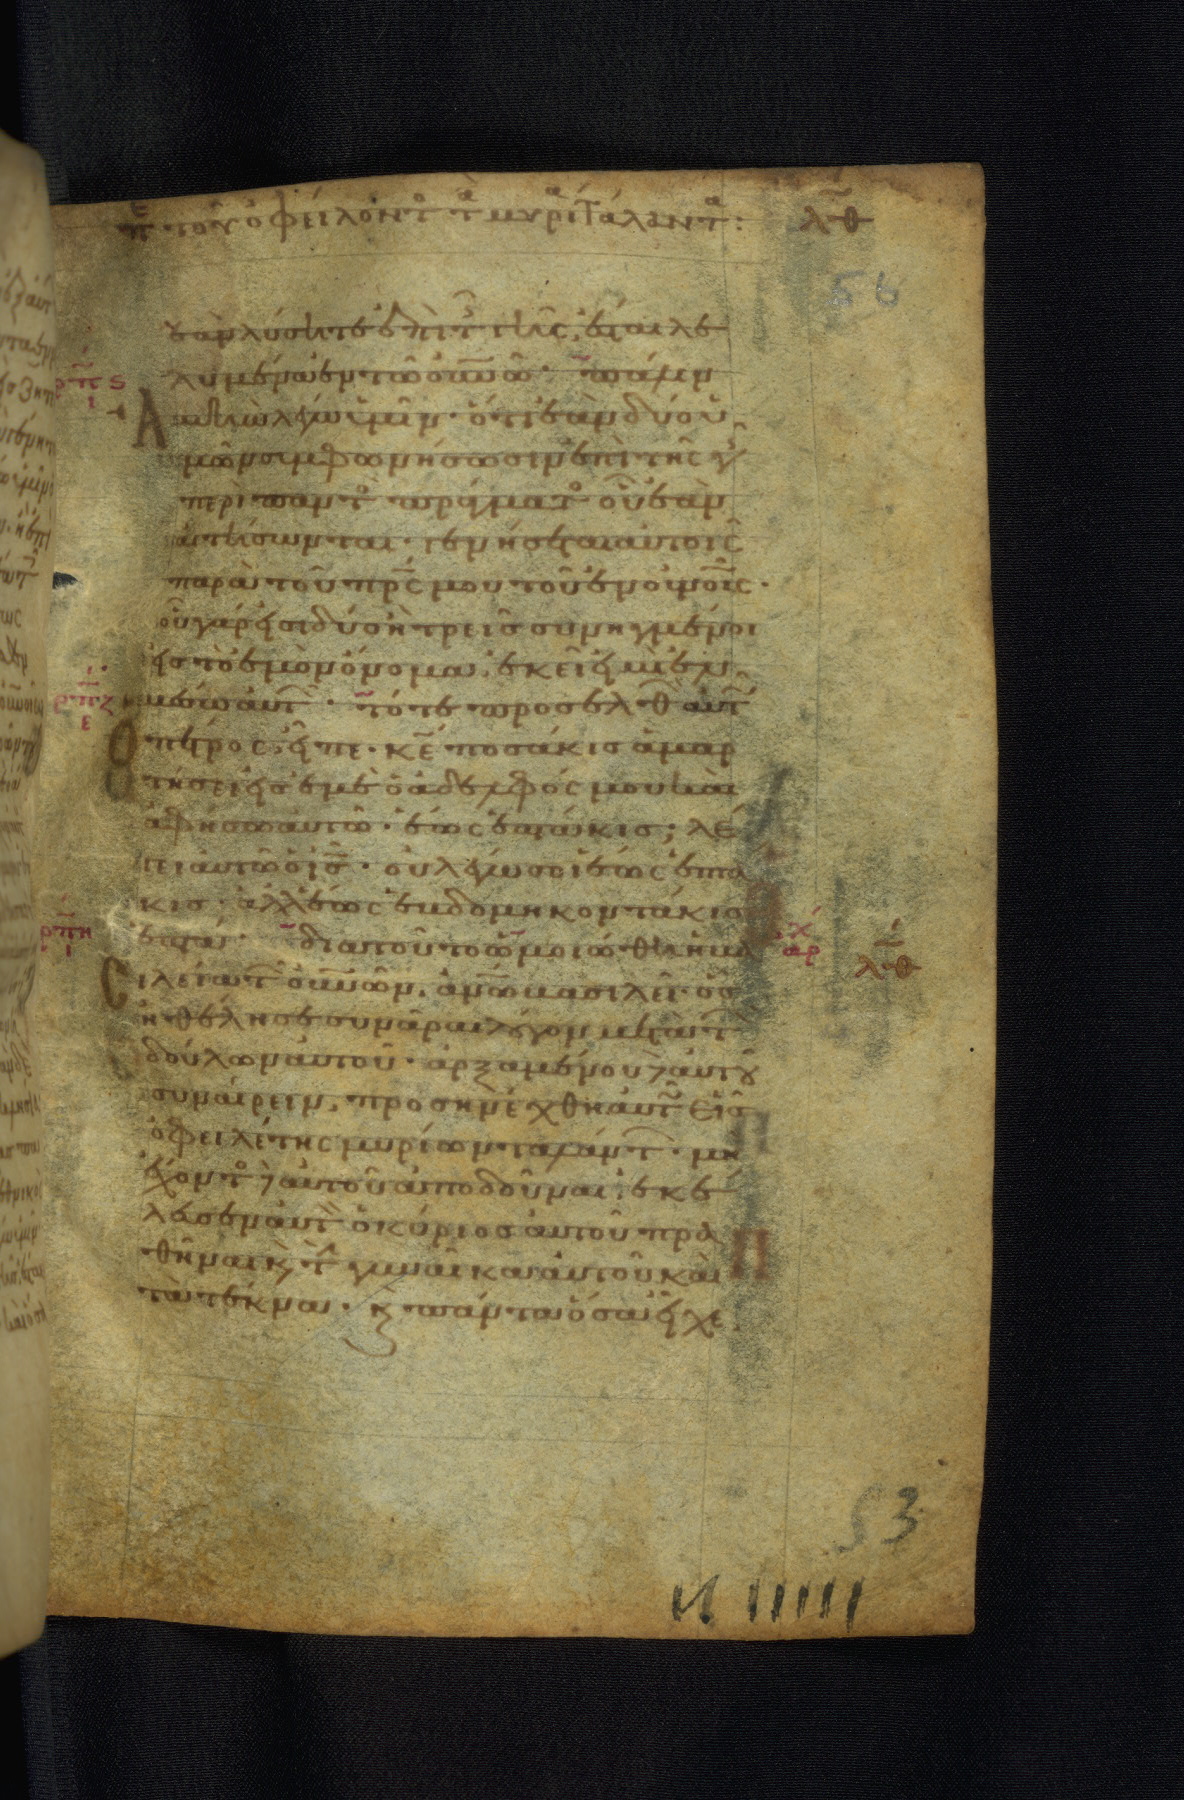 πε του οφειλοντο τα μυρια ταλαντα: λθ
56
ἐὰν λύσητε ἐπὶ τ γῆς, ἔσται λε
λυμένα ἐν τῶ οὐνῶ· πάλιν
ρπς
ι
Ἀμὴν λέγω ὑμῖν· ὅτι ἐὰν δύο ὑ
μῶν συμφωνήσωσιν ἐπὶ τῆς γῆς
περὶ παντὸς πράγματος οὗ ἐὰν
αἰτήσωνται· γενήσεται αὐτοῖς
παρὰ τοῦ πρς μου τοῦ ἐν οὐνοῖς·
οὗ γάρ εἰσι δύο ἢ τρεῖς συνηγμένοι
εἰς τὸ ἐμὸν ὄνομα, ἐκεῖ εἰμὶ ἐν
ρπζ
ε
μέσω αὐτῶν· τότε προσελθὼν αὐτῶ
ὁ πέτρος εἶπε· κε ποσάκις ἁμαρ
τήσει εἰς ἐμὲ ὁ ἀδελφός μου καὶ
ἀφήσω αὐτῶ· ἕως ἑπτάκις; λέ
γει αὐτῶ ὁ ις· οὐ λέγω σοι ἕως ἑπτά
κις· ἀλλ' ἕως ἑβδομηκοντάκις
ρπη
ι
ἑπτά· διὰ τοῦτο ὡμοιώθη ἡ βα
αρχ
λθ
σιλεία τῶν οὐνῶν, ἀνω βασιλεῖ· ὃς
ἠθέλησε συνᾶραι λόγον μετὰ τῶν
δούλων αὐτοῦ· ἀρξαμένου δὲ αὐτοῦ
συναίρειν, προσηνέχθη αὐτῶ εἷς
ὀφειλέτης μυρίων ταλάντων· μὴ
ἔχοντος δὲ αὐτοῦ ἀποδοῦναι, ἐκέ
λευσεν αὐτὸν ὁ κύριος αὐτοῦ πρα
θῆναι κ τὴν γυναῖκα αὐτοῦ καὶ
τὰ τέκνα· κ πάντα ὅσα εἶχε
53